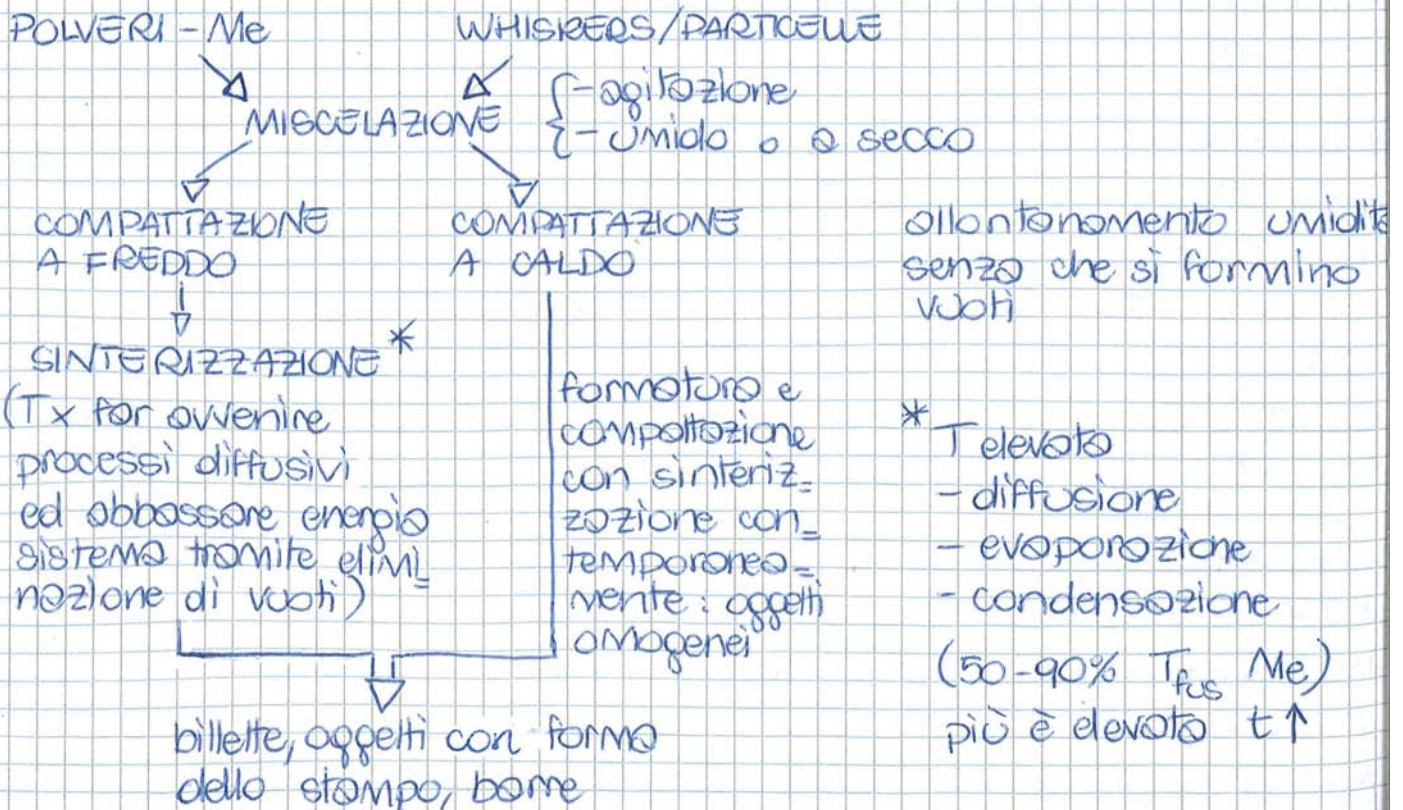 POLVERI - Me
WHISKERS/PARTICELLE
MISCELAZIONE
- agitazione
- umido o a secco
COMPATTAZIONE
A FREDDO
COMPATTAZIONE
A CALDO
allontanamento umidità
senza che si formino
vuoti
SINTERIZZAZIONE *
(Tx far avvenire
processi diffusivi
ed abbassare energia
sistema tramite elimi=
nazione di vuoti)
formatura e
compattazione
con sinteriz=
zazione con=
temporanea=
mente : oggetti
omogenei
* T elevata
- diffusione
- evaporazione
- condensazione
(50-90% Tfus Me)
più è elevata t↑
billette, oggetti con forma
dello stampo, barre